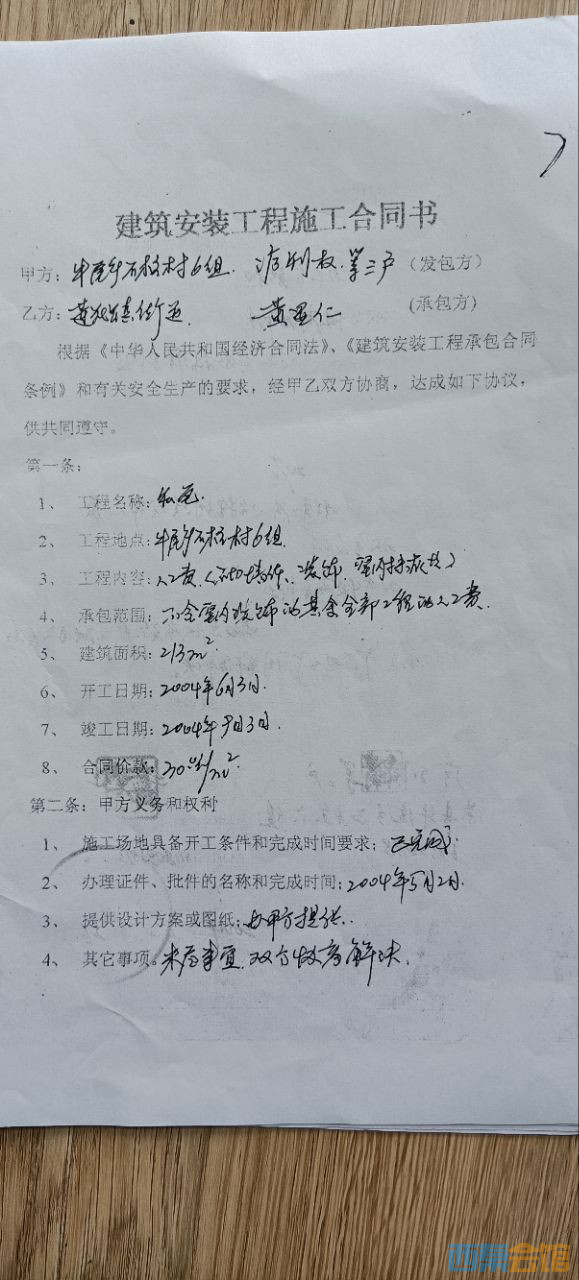 建筑安装工程施工合同书
甲方：牛尾乡石板村6组 第三户（发包方）
乙方：街 黄 仁 (承包方)
根据《中华人民共和国经济合同法》、《建筑安装工程承包合同
条例》和有关安全生产的要求，经甲乙双方协商，达成如下协议，
供共同遵守。
第一条：
1、 工程名称：私宅.
2、 工程地点：牛尾乡石板村6组
3、 工程内容：人工费
4、 承包范围：不含室内装饰的其余全部工程的人工费.
5、 建筑面积：213m²
6、 开工日期：2004年6月3日.
7、 竣工日期：2004年9月3日.
8、 合同价款：/m²
第二条：甲方义务和权利
1、 施工场地具备开工条件和完成时间要求；已完成
2、 办理证件、批件的名称和完成时间：2004年5月2日.
3、 提供设计方案或图纸：由甲方提供.
4、 其它事项。未尽事宜.双方协商解决.
西祠会馆